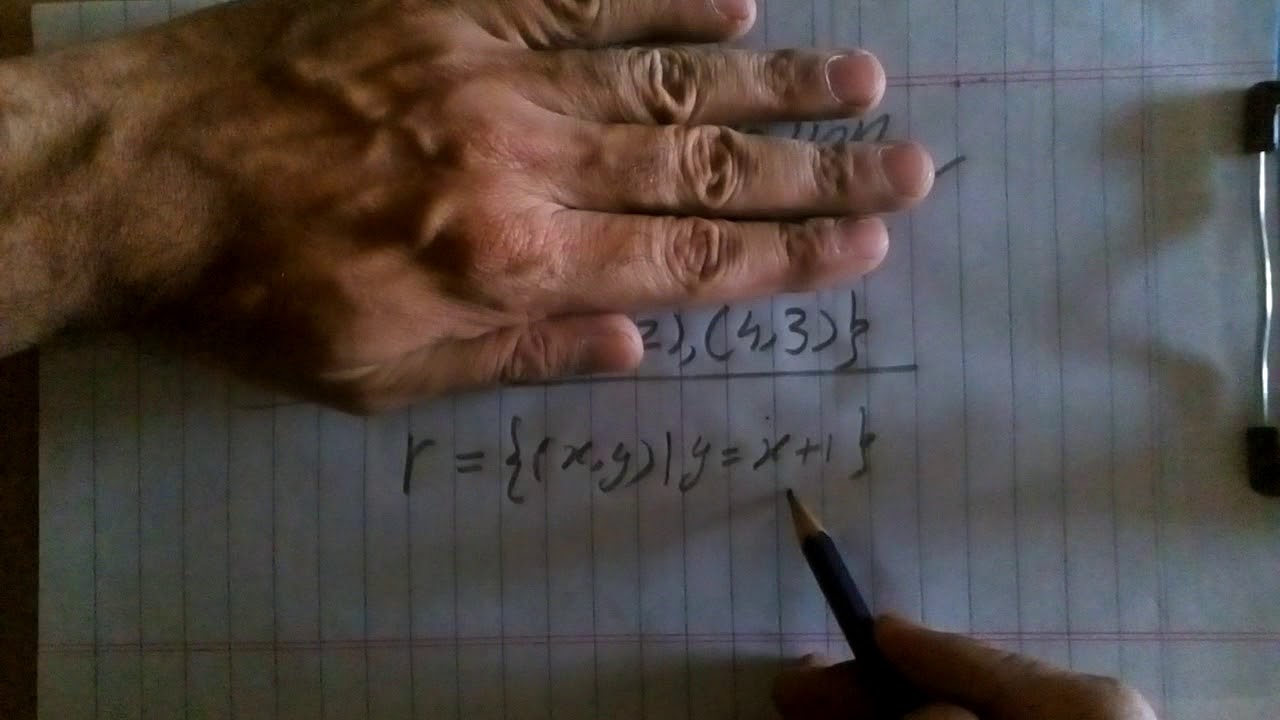 2),(4,3)}
r = {(x,y)|y=x+1}